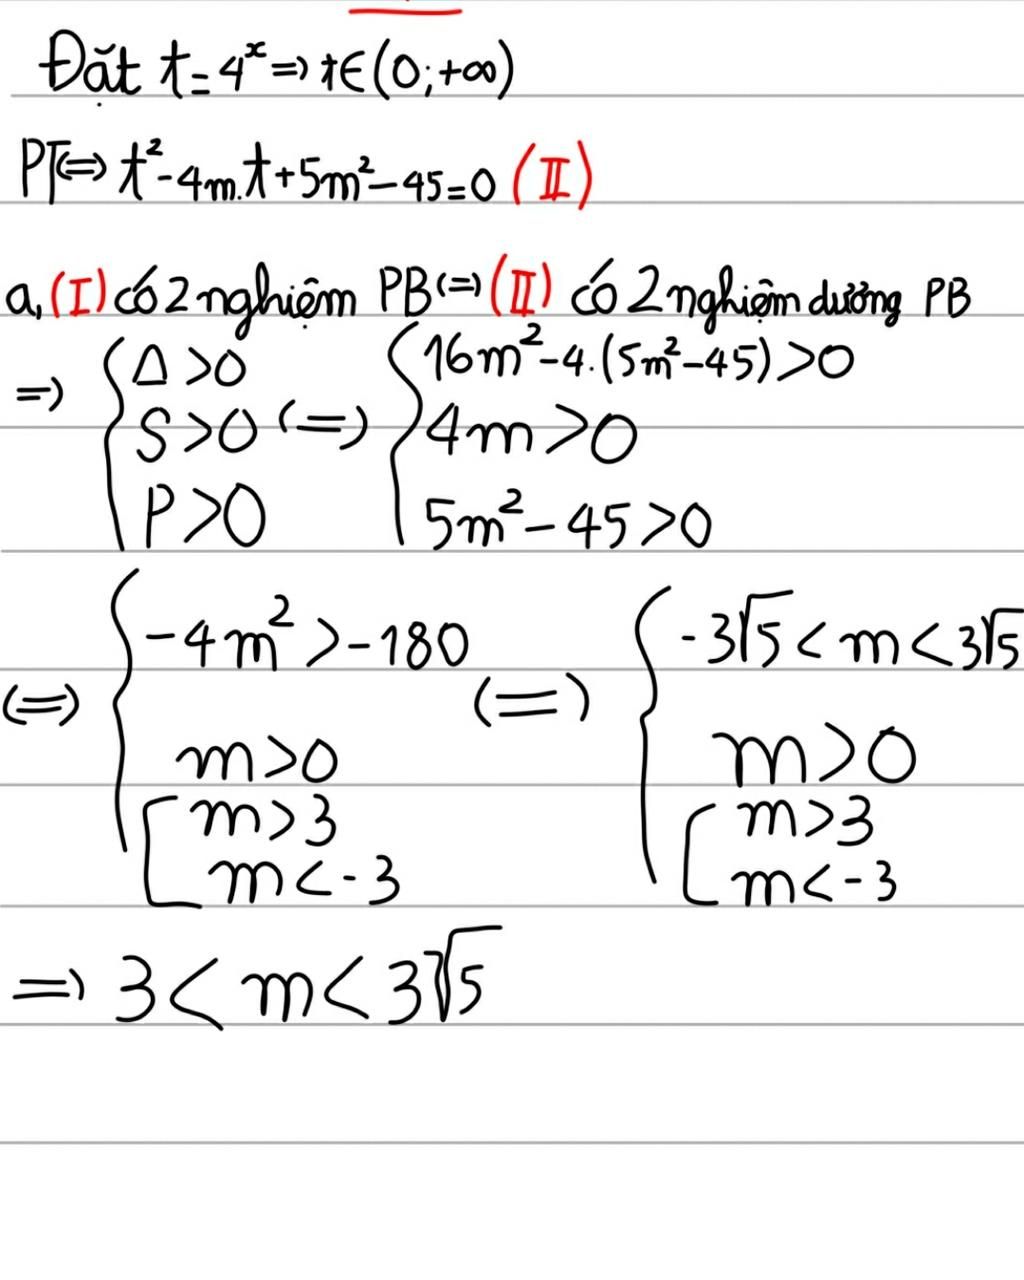 Đặt t = 4^x => t∈(0;+∞)
PT<=> t² - 4m.t + 5m² - 45 = 0 (II)
a, (I) có 2 nghiệm PB <=> (II) có 2 nghiệm dương PB
=> { Δ > 0 { 16m² - 4.(5m² - 45) > 0
S > 0 <=> 4m > 0
P > 0 5m² - 45 > 0
{ -4m² > -180 { -3√5 < m < 3√5
<=> <=>
m > 0 m > 0
[ m > 3 [ m > 3
m < -3 m < -3
=> 3 < m < 3√5